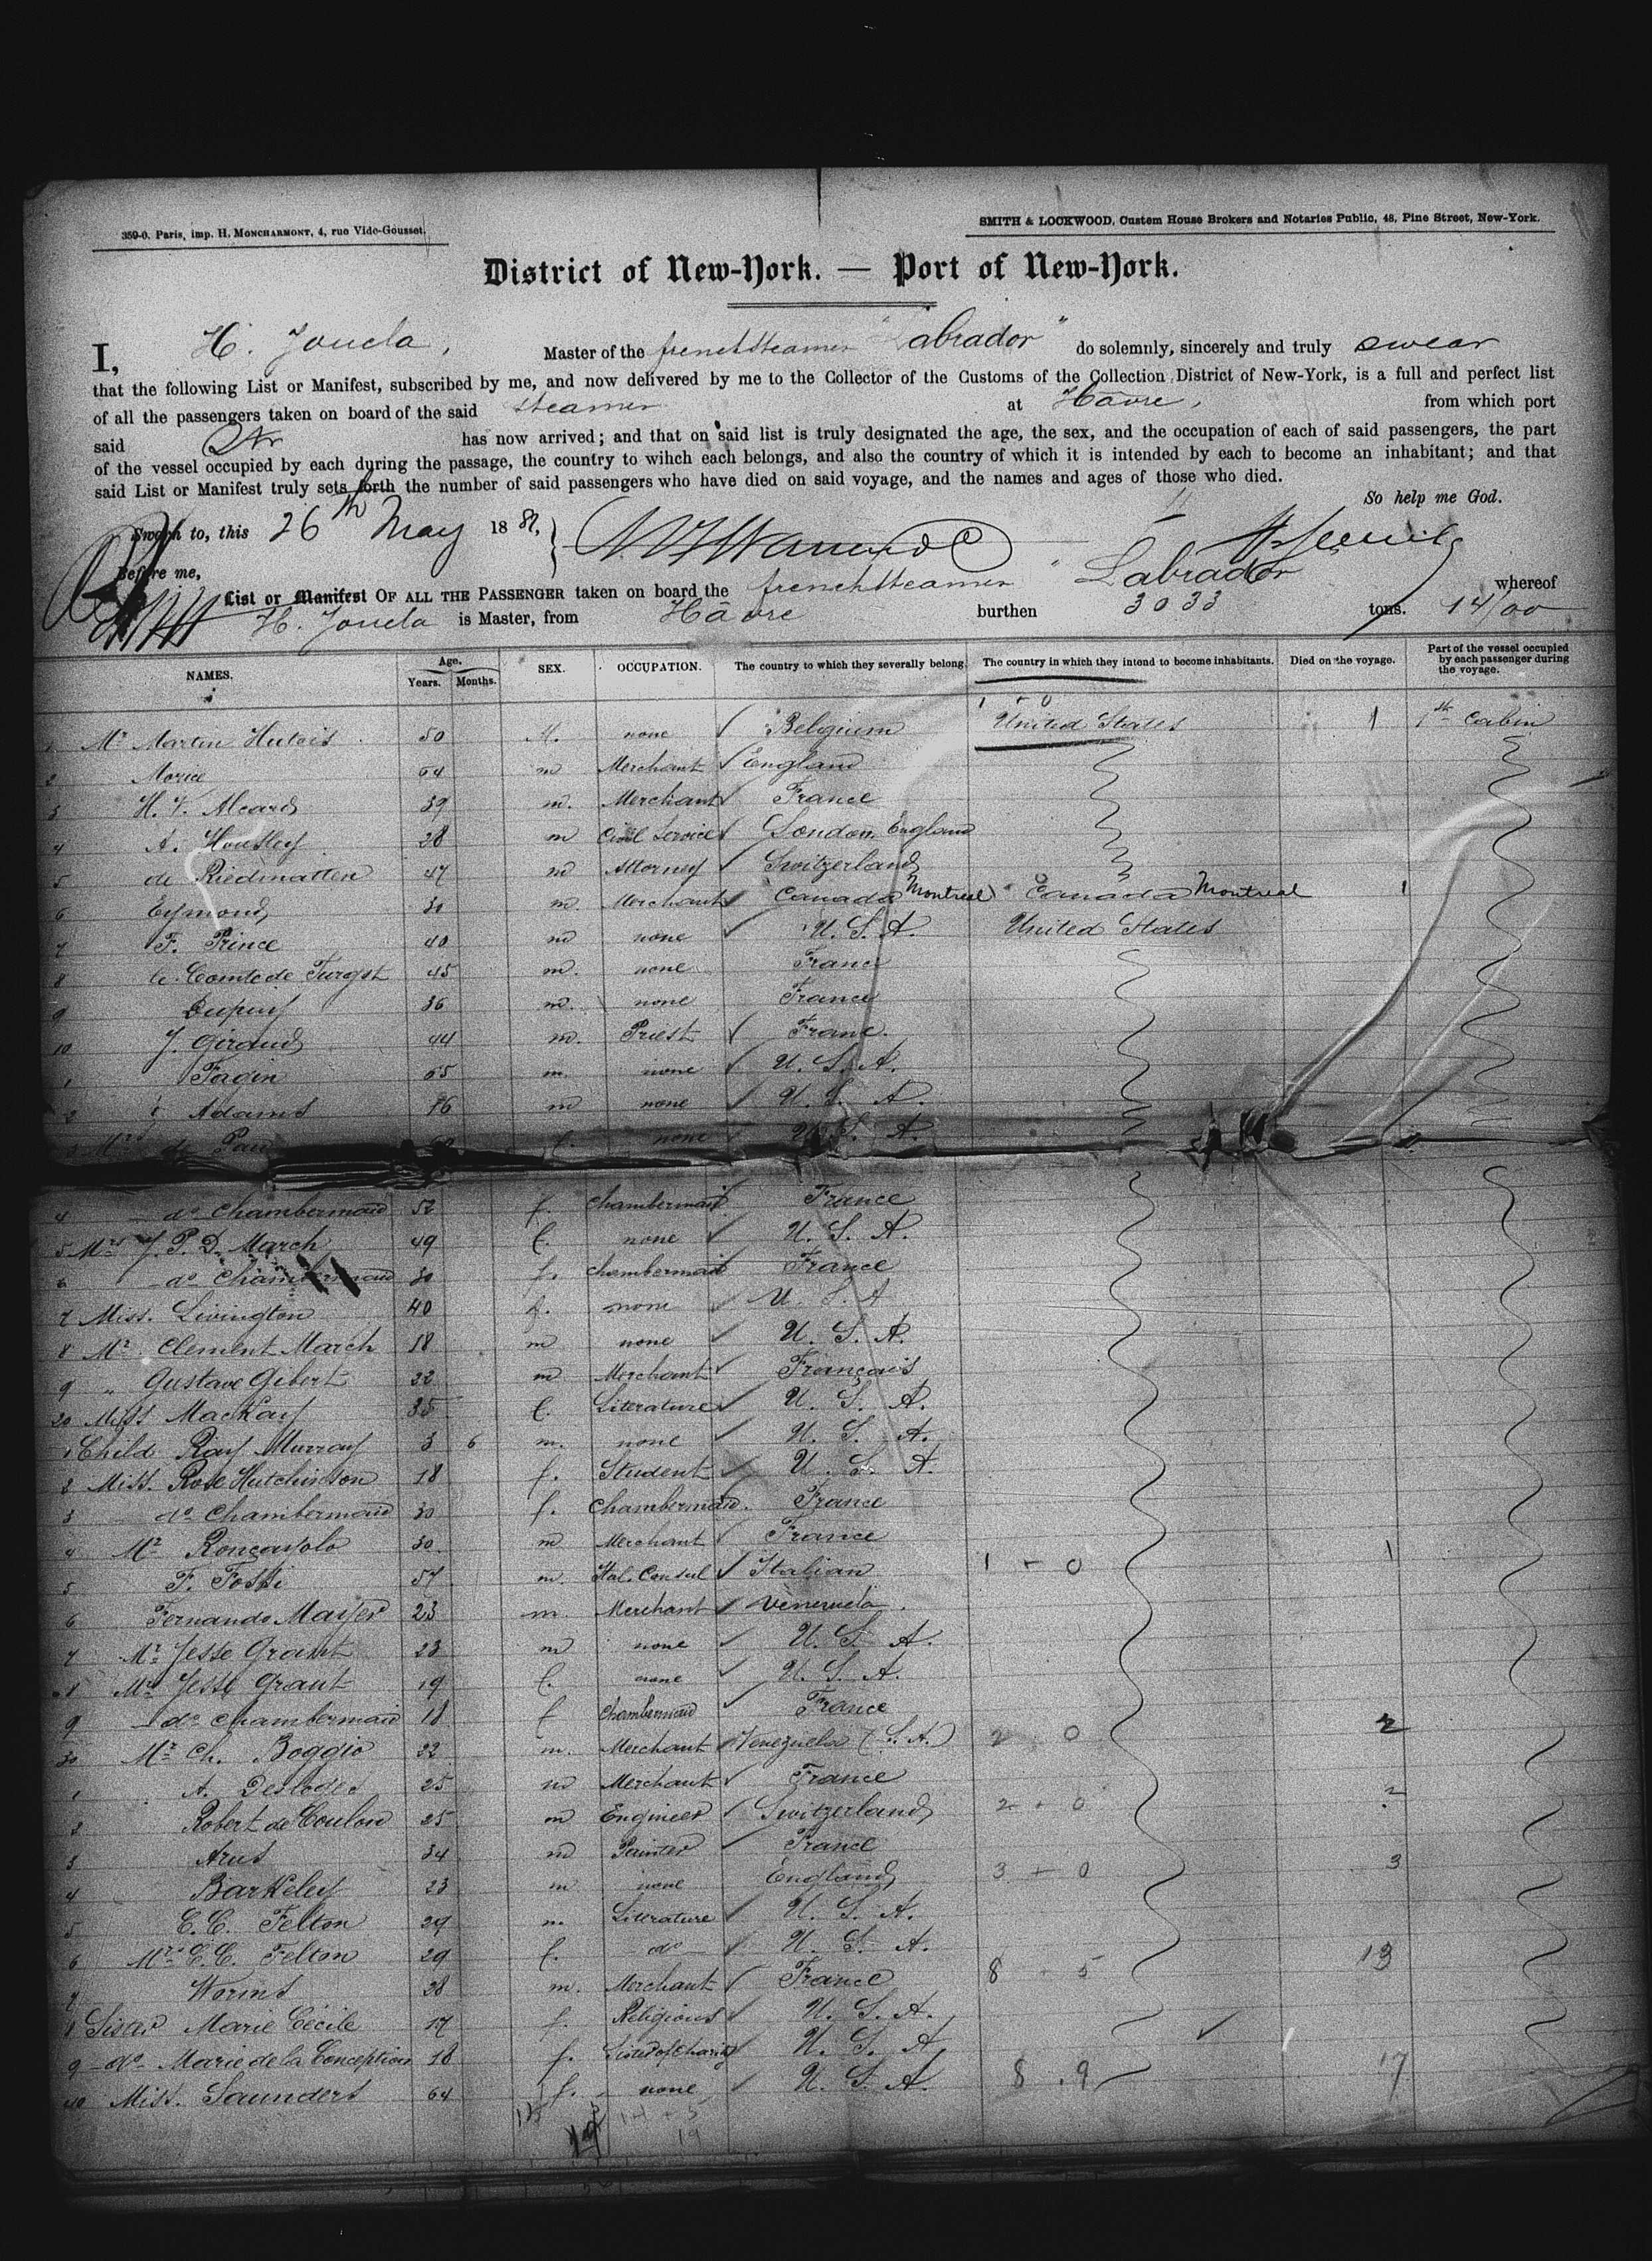 359-0. Paris, imp. H. MONCHARMONT, 4, rue Vide-Gousset.
SMITH & LOCKWOOD, Custom House Brokers and Notaries Public, 48, Pine Street, New-York.
District of New-York. — Port of New-York.
I, H. Joucla, Master of the french steamer "Labrador" do solemnly, sincerely and truly swear
that the following List or Manifest, subscribed by me, and now delivered by me to the Collector of the Customs of the Collection District of New-York, is a full and perfect list
of all the passengers taken on board of the said steamer at Hâvre, from which port
said Str has now arrived; and that on said list is truly designated the age, the sex, and the occupation of each of said passengers, the part
of the vessel occupied by each during the passage, the country to wihch each belongs, and also the country of which it is intended by each to become an inhabitant; and that
said List or Manifest truly sets forth the number of said passengers who have died on said voyage, and the names and ages of those who died.
So help me God.
Sworn to, this 26th May 188
Before me,
List or Manifest OF ALL THE PASSENGER taken on board the french steamer "Labrador whereof
H. Joucla is Master, from Hâvre burthen 3033 tons. 14/00
NAMES. Age. Years. Months. SEX. OCCUPATION. The country to which they severally belong. The country in which they intend to become inhabitants. Died on the voyage. Part of the vessel occupied by each passenger during the voyage.
1 - 0
1 Mr Martin Hutois 50 M. none Belgium United States 1 1st Cabin
2 Morice 54 m Merchant England
3 H. V. Meard 39 m. Merchant France
4 A. Houslley 28 m Civil Service London England
5 de Riedmatten 47 m Attorney Switzerland
6 Eymond 30 m. Merchant Canada Montreal Canada Montreal 1
7 F. Prince 40 m none U. S. A. United States
8 le Comte de Turgot 45 m. none France
9 Dupuy 36 m. none France
10 J. Giraud 44 m. Priest France.
1 Fagin 65 m. none U. S. A.
2 Adams 76 m none U. S. A.
3 Mrs de Pau f. none U. S. A.
4 - do Chambermaid 52 f. Chambermaid France
5 Mrs J. P. D. March 49 f. none U. S. A.
6 - do Chambermaid 30 f. Chambermaid France
7 Miss. Livington 40 f. none U. S. A
8 Mr Clement March 18 m none U. S. A.
9 " Gustave Gibert 22 m Merchant Français
20 Miss MacKay 35 f. Literature U. S. A.
1 Child Ray Murray 3 6 m. none U. S. A.
2 Miss. Rose Hutchinson 18 f. Student U. S. A.
3 - do Chambermaid 30 f. Chambermaid. France
4 Mr Roncayolo 30. m Merchant France
5 F. Fossi 57 m. Ital. Consul Italian 1 - 0 1
6 Fernando Mayer 23 m. Merchant Venezuela.
7 Mr Jesse Grant 23 m none U. S. A.
8 Mrs Jesse Grant 19 f. none U. S. A.
9 - do chambermaid 18 f Chambermaid France
30 Mr Ch. Boggio 22 m. Merchant Venezuela (S. A.) 2 0 2
1 A. Desloges 25 m Merchant France
2 Robert de Coulon 25 m Engineer Switzerland 2 + 0 2
3 Arus 34 m Painter France
4 Barkeley 23 m none England 3 + 0 3
5 C. C. Felton 29 m. Literature U. S. A.
6 Mrs C. C. Felton 29 f. do U. S. A.
7 Worms 28 m. Merchant France 8 - 5 13
8 Sister Marie Cécile 17 f. Religious U. S. A.
9 - do - Marie de la Conception 18 f. Sister of Charity U. S. A
40 Miss. Saunders 64 f. none U. S. A. 8 . 9 17
14 + 5
19 19